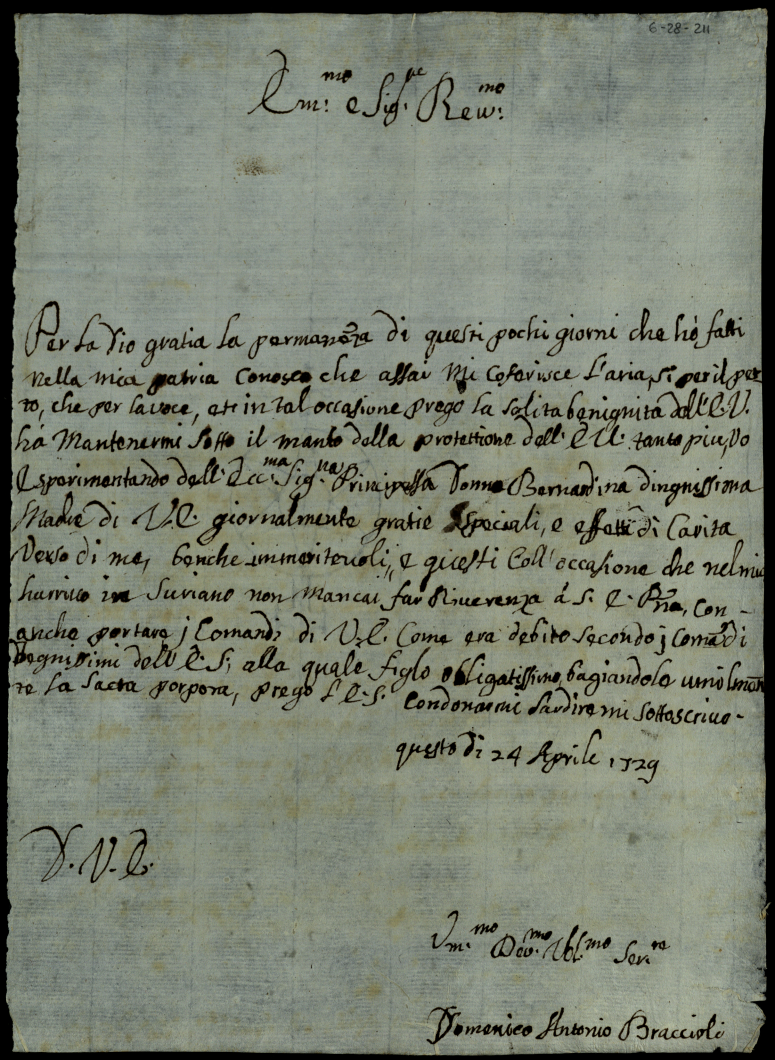 6-28-211
Em.mo e Sig.re Rev.mo
Per la Dio gratia la permanenza di questi pochi giorni che hò fatti
nella mia patria conosco che assai mi coferisce l'aria, si per il pet
to, che per la voce, et in tal occasione prego la solita benignità dell'E.V.
hà mantenermi sotto il manto della protettione dell'E.V. tanto piu, vo
esperimentando dell'Ecc.ma Sig.ra Principessa Donna Bernardina dingnissima
Madre di V.E. giornalmente gratie speciali, e effetti di Carita
verso di me, benche immeritevoli, e questi coll'occasione che nel mio
harrivo in Suriano non mancai far Riverenza á S. E. Pña, con-
anche portare j Comandi di V.E. come era debito secondo j Comādi
degnissimi dell'E.S. alla quale figlo obligatissimo, bagiandole umilmēn
te la sacra porpora, prego l'E.S. condonarmi l'ardire mi sottoscrivo-
questo di 24 Aprile 1729
D. V. E.
Um.mo Dev.mo Obl.mo Ser.re
Domenico Antonio Braccioli